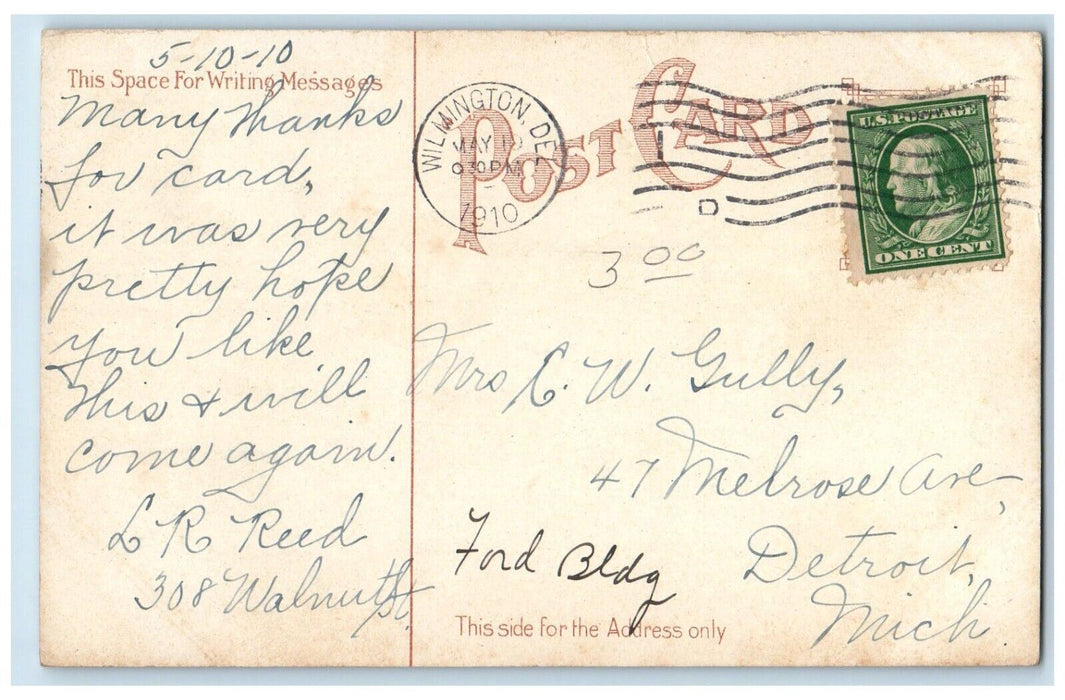 5-10-10
This Space For Writing Messages
Many thanks
for card,
it was very
pretty hope
you like
this & will
come again.
L R Reed
308 Walnut St.
POST CARD
WILMINGTON, DEL
MAY 10
6 30 PM
1910
D
U.S. POSTAGE
ONE CENT
3 00
Mrs C. W. Gully,
47 Melrose Ave,
Detroit,
Mich
Ford Bldg
This side for the Address only